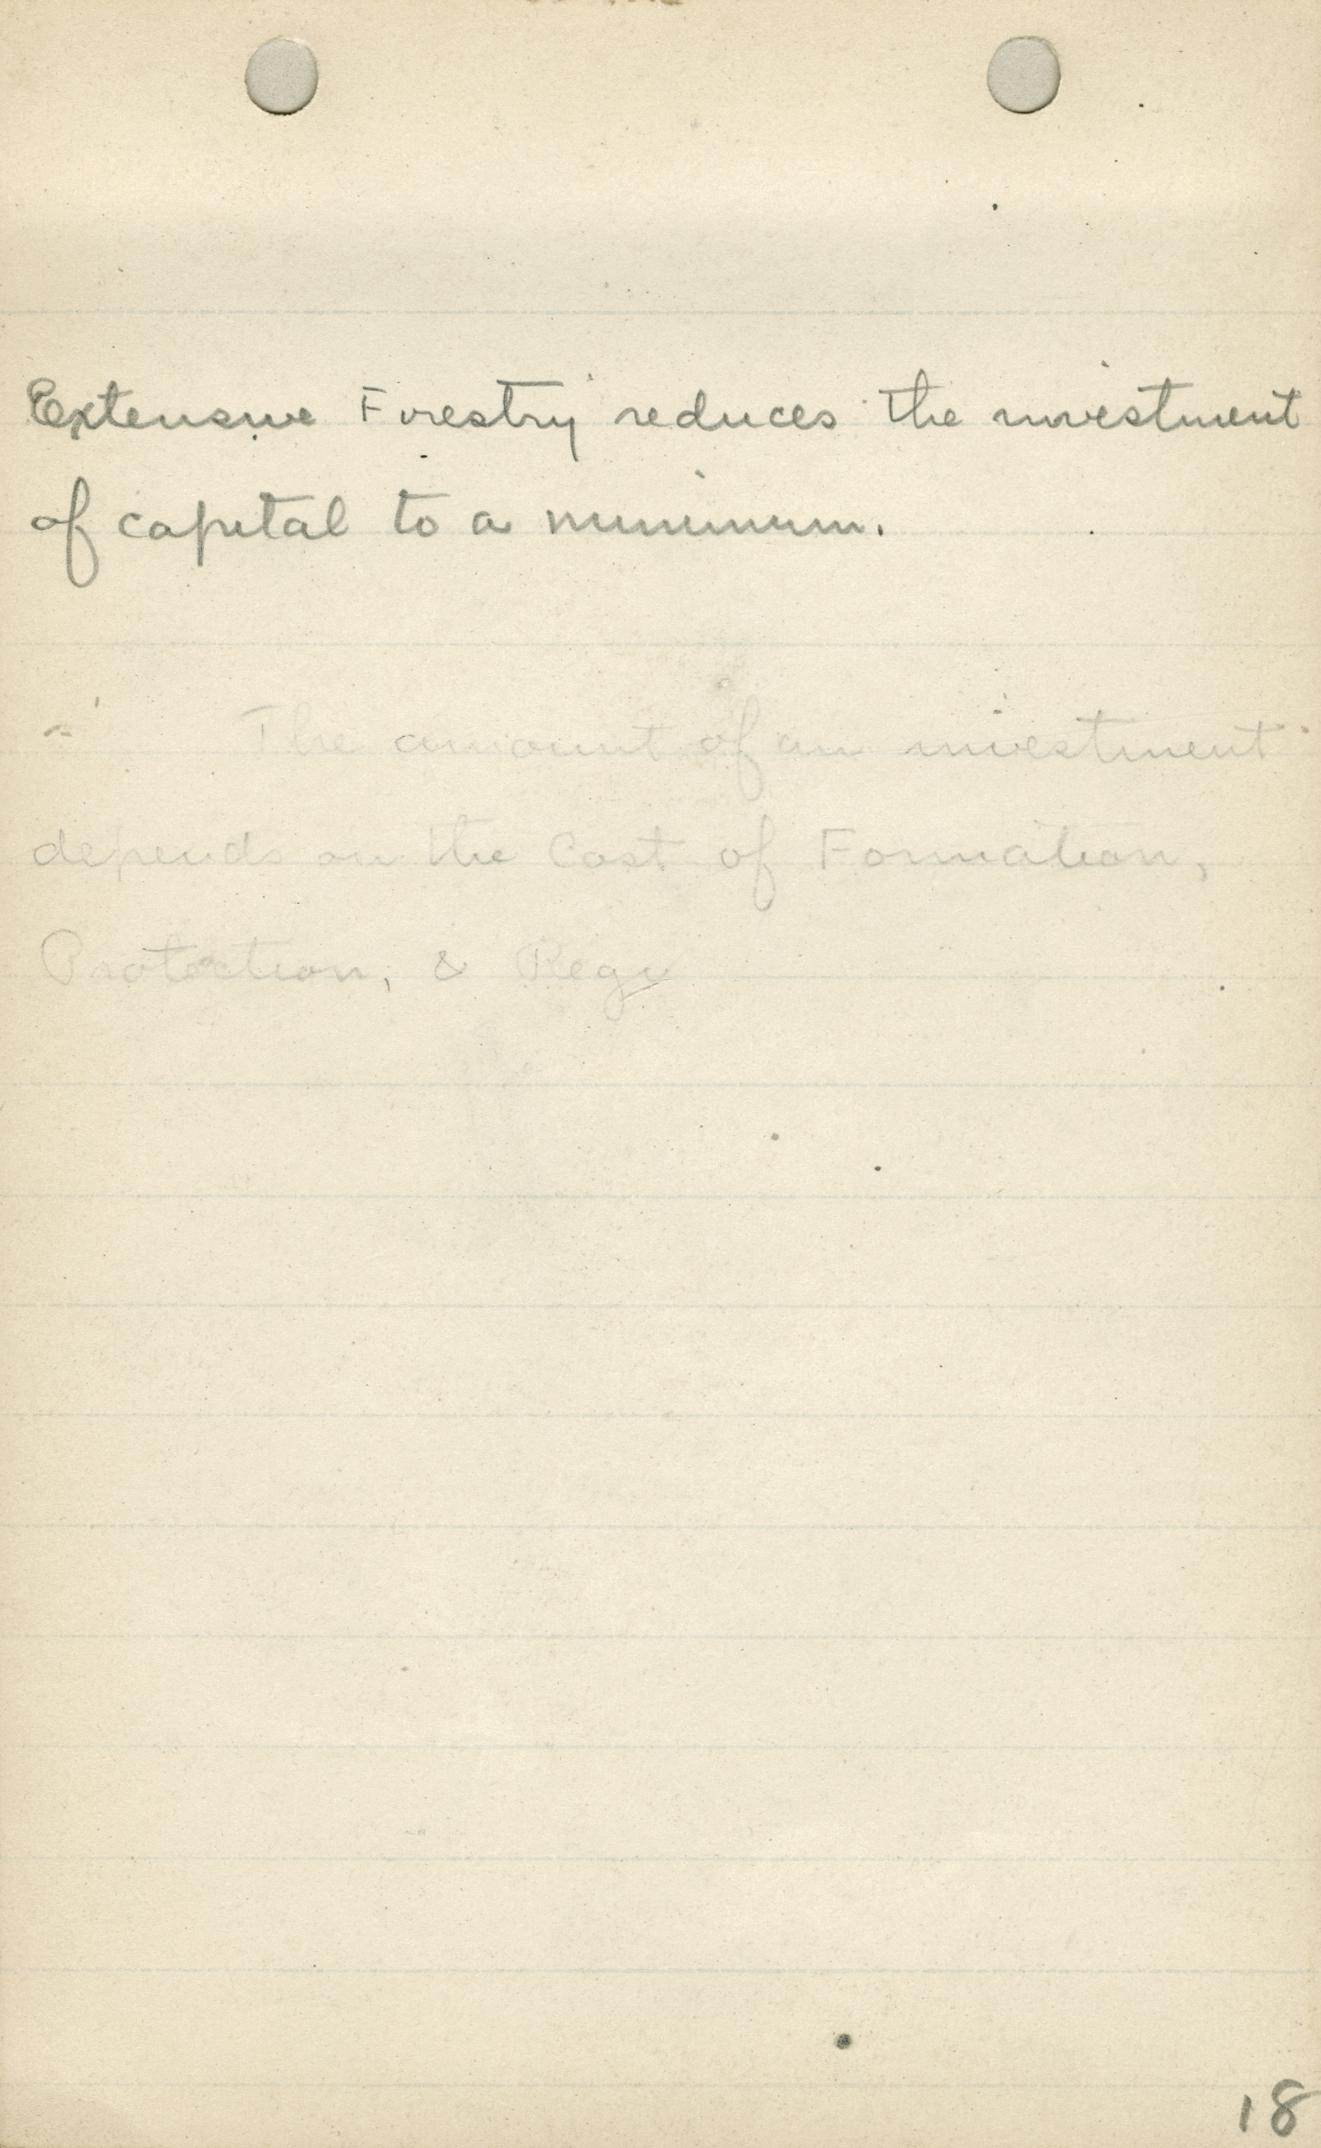 Extensive Forestry reduces the investment
of capital to a minimum.
The amount of an investment
depends on the Cost of Formation,
Protection, & Rege
18